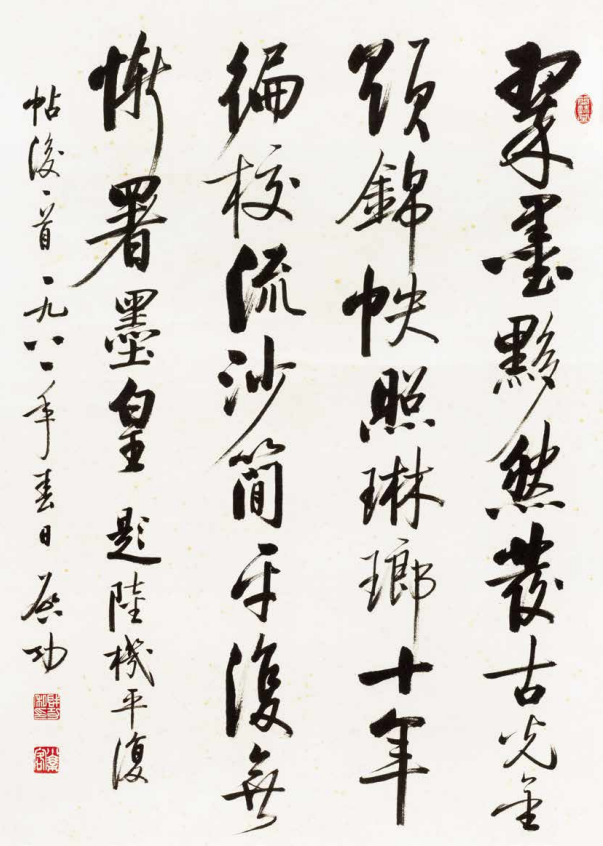 翠墨黟然發古光金
題錦帙照琳瑯十年
徧校流沙簡平復無
慚署墨皇 題陸機平復
帖後一首一九八一年春日 啟功